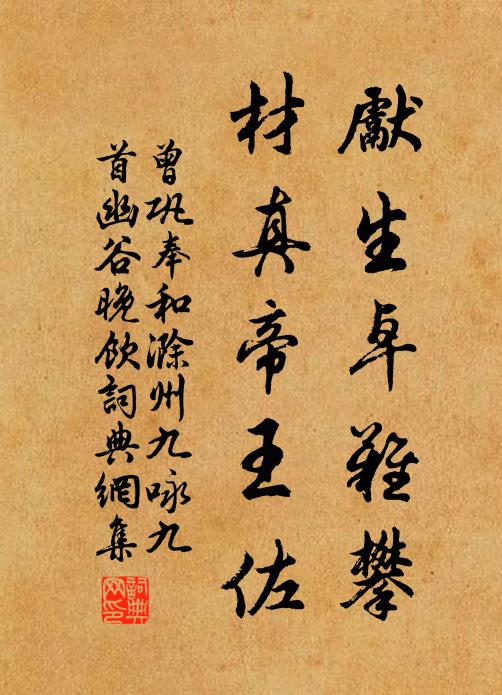 獻生卓難攀
材真帝王佐
曾巩奉和滁州九咏九
首幽谷晚飲詞典網集
詞典
网印